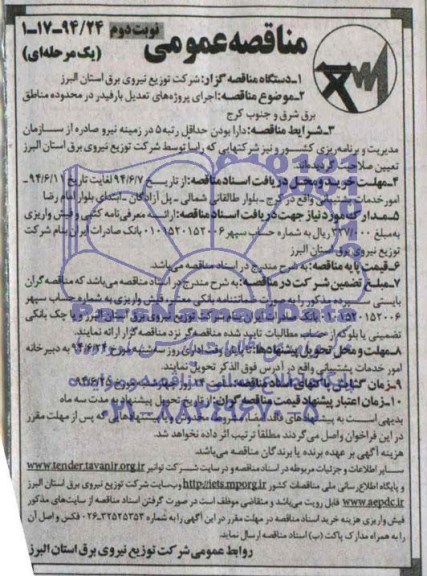 مناقصه عمومی
نوبت دوم
۱-۱۷-۹۴/۲۴
(یک مرحله‌ای)
۱-دستگاه مناقصه گزار: شرکت توزیع نیروی برق استان البرز
۲-موضوع مناقصه: اجرای پروژه‌های تعدیل بارفیدر در محدوده مناطق
برق شرق و جنوب کرج
۳-شرایط مناقصه: دارا بودن حداقل رتبه ۵ در زمینه نیرو صادره از سازمان
مدیریت و برنامه‌ریزی کشور و نیز شرکتهایی که راسا توسط شرکت توزیع نیروی برق استان البرز
تعیین صلاحیت گردیده‌اند
۴-مهلت خرید و محل دریافت اسناد مناقصه: از تاریخ ۹۴/۶/۷ لغایت تاریخ ۹۴/۶/۱۰ـ
امور خدمات پشتیبانی واقع در کرج - بلوار طالقانی شمالی - پل آزادگان - ابتدای بلوار امام رضا
۵-مدارک مورد نیاز جهت دریافت اسناد مناقصه: ارائه معرفی‌نامه کتبی و فیش واریزی
به مبلغ ریال به شماره حساب سپهر ۰۱۰۱۵۲۰۱۵۲۰۰۶ بانک صادرات ایران بنام شرکت
توزیع نیروی برق استان البرز
۶-قیمت پایه مناقصه: به شرح مندرج در اسناد مناقصه می‌باشد
۷-مبلغ تضمین شرکت در مناقصه: به شرح مندرج در اسناد مناقصه می‌باشد که مناقصه گران
بایستی سپرده مذکور را به صورت ضمانتنامه بانکی معتبر، فیش واریزی به شماره حساب سپهر
بانک صادرات ایران بنام شرکت توزیع نیروی برق استان البرز و یا چک بانکی
تضمینی یا بلوکه از حساب مطالبات تایید شده مناقصه‌گر نزد مناقصه گزار ارائه نمایند.
۸-مهلت و محل تحویل پیشنهادها: تا پایان وقت اداری روز سه شنبه مورخ ۹۴/۶/۲۴ به دبیرخانه
امور خدمات پشتیبانی واقع در آدرس فوق الذکر تحویل نمایند.
۹-زمان گشایش پاکتهای اسناد مناقصه: ساعت روز چهارشنبه مورخ ۹۴/۶/۲۵
۱۰-زمان اعتبار پیشنهاد قیمت مناقصه گران: از تاریخ تحویل پیشنهاد به مدت سه ماه
بدیهی است به پیشنهادهای فاقد امضاء، مشروط، مخدوش و پیشنهادهایی که پس از مهلت مقرر
در این فراخوان واصل می‌گردند مطلقا ترتیب اثر داده نخواهد شد.
هزینه آگهی بر عهده برنده یا برندگان مناقصه می‌باشد.
سایر اطلاعات و جزئیات مربوطه در اسناد مناقصه و در سایت شرکت توانیر www.tender.tavanir.org.ir
و پایگاه اطلاع‌رسانی ملی مناقصات کشور http://iets.mporg.ir وب‌سایت شرکت توزیع نیروی برق استان البرز
www.aepdc.ir قابل رویت می‌باشد و متقاضی موظف است در صورت گرفتن اسناد مناقصه از سایت‌های مذکور
فیش واریزی هزینه خرید اسناد مناقصه در مهلت مقرر در این آگهی را به شماره ۳۲۵۲۵۳۵۳-۰۲۶ فکس و اصل آن
را به همراه مدارک پاکت (ب) اسناد مناقصه ارسال نماید.
روابط عمومی شرکت توزیع نیروی برق استان البرز
۰۲۱-۸۸۳۴۹۶۷۰-۵